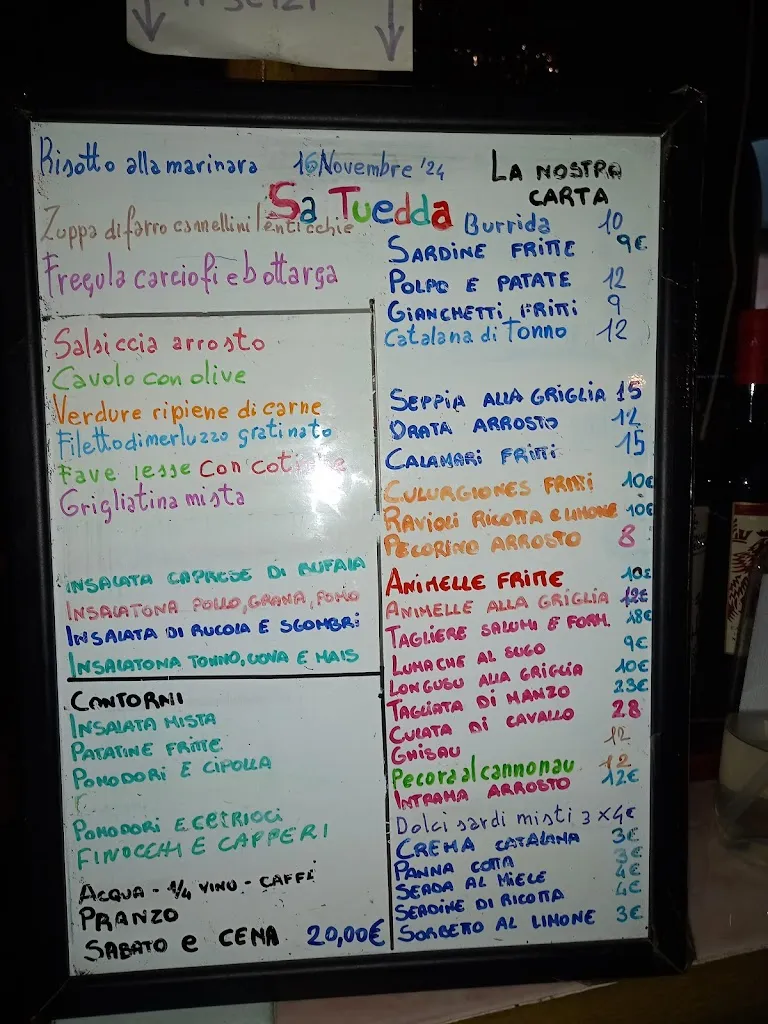 Risotto alla marinara 16 Novembre '24
LA NOSTRA CARTA
Sa Tuedda
Zuppa di farro cannellini lenticchie
Fregula carciofi e bottarga
Salsiccia arrosto
Cavolo con olive
Verdure ripiene di carne
Filetto di merluzzo gratinato
Fave lesse con cotiche
Grigliatina mista
INSALATA CAPRESE DI BUFALA
INSALATONA POLLO, GRANA, POMO
INSALATA DI RUCOLA E SGOMBRI
INSALATONA TONNO, UOVA E MAIS
CONTORNI
INSALATA MISTA
PATATINE FRITTE
POMODORI E CIPOLLA
POMODORI E CETRIOCI
FINOCCHI E CAPPERI
ACQUA - 1/4 VINO - CAFFÈ
PRANZO
SABATO e CENA 20,00€
Burrida 10
SARDINE FRITTE 9€
POLPO E PATATE 12
GIANCHETTI FRITTI 9
Catalana di Tonno 12
SEPPIA ALLA GRIGLIA 15
ORATA ARROSTO 12
CALAMARI FRITTI 15
CULURGIONES FRITTI 10€
RAVIOLI RICOTTA E LIMONE 10€
PECORINO ARROSTO 8
ANIMELLE FRITTE 10€
ANIMELLE ALLA GRIGLIA 12€
TAGLIERE SALUMI E FORM. 18€
LUMACHE AL SUGO 9€
LONGUSU ALLA GRIGLIA 10€
TAGLIATA DI MANZO 23€
CULATA DI CAVALLO 28
GHISAU 12
Pecora al cannonau 12
INTRAMA ARROSTO 12€
Dolci sardi misti 3 x 4€
CREMA CATALANA 3€
PANNA COTTA 3€
SEADA AL MIELE 4€
SERDINE DI RICOTTA 4€
SORBETTO AL LIMONE 3€